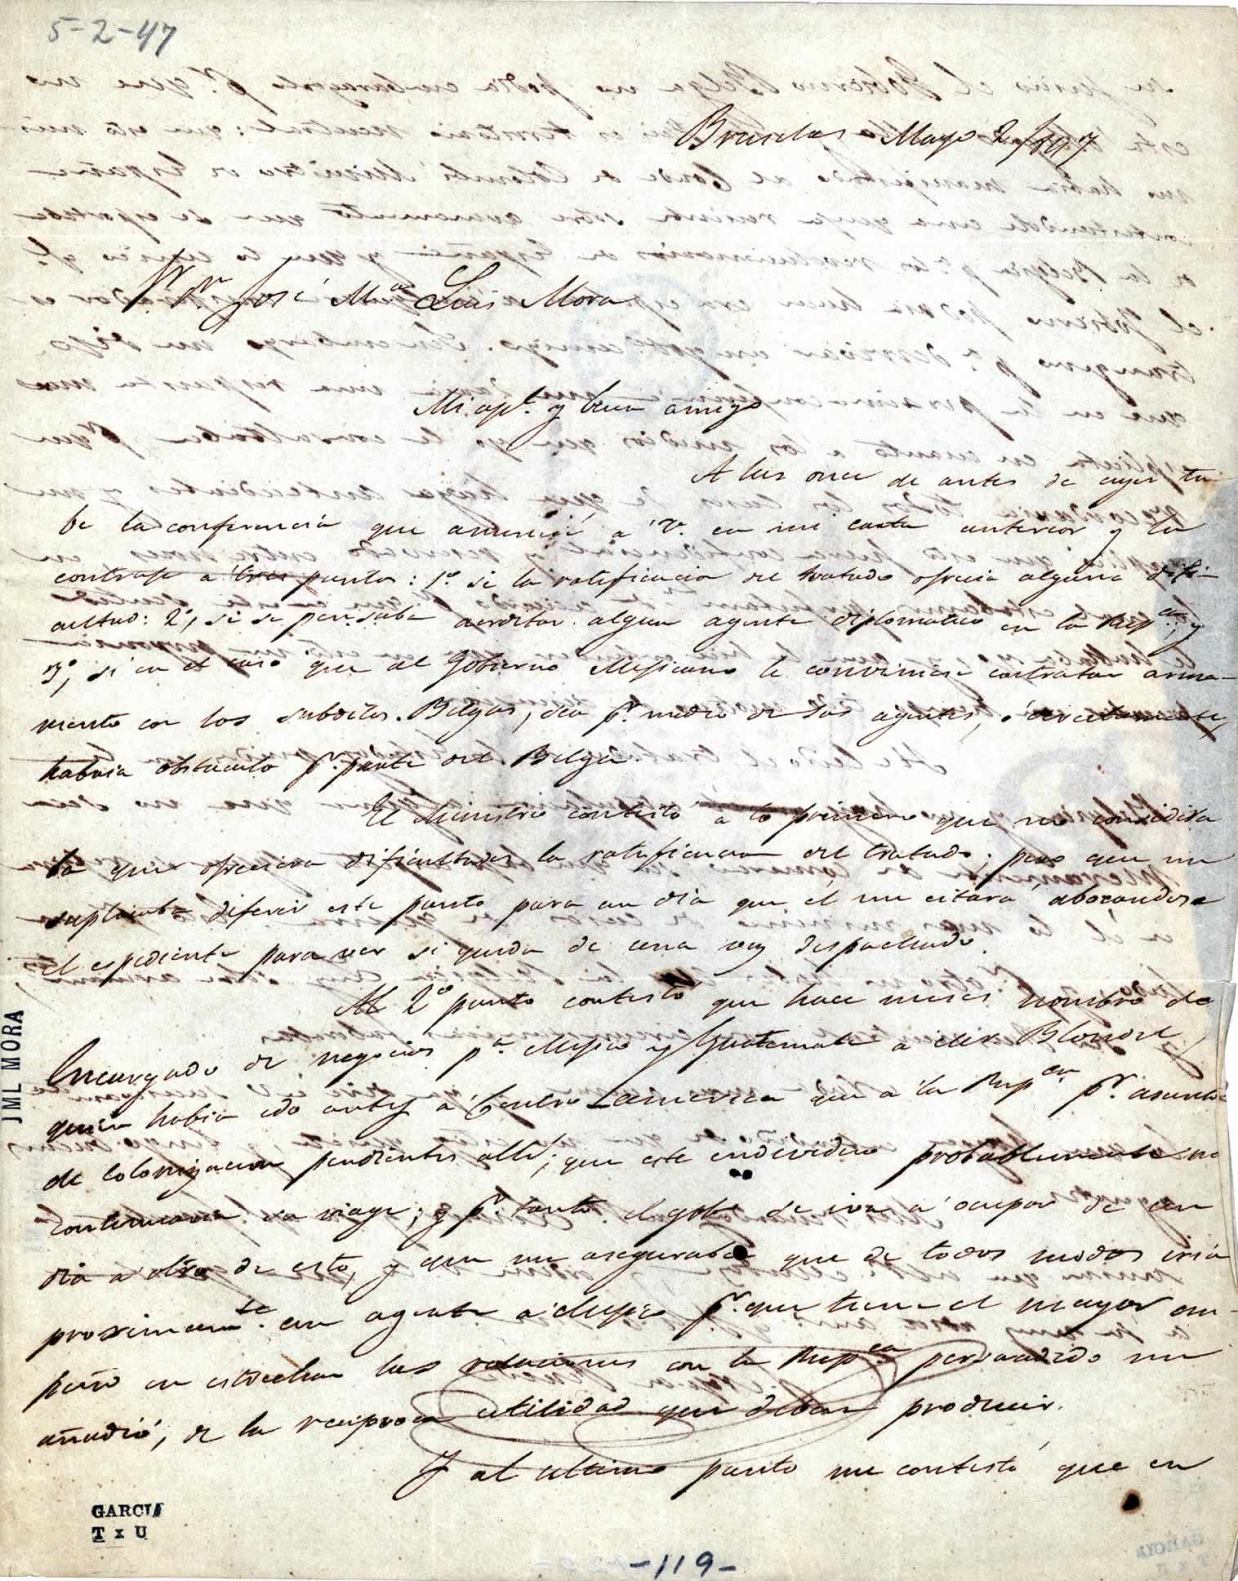 5-2-47
Bruselas Mayo 2/847
Sr. Dr. José Ma. Luis Mora
Mi apte. y buen amigo
A las once de antes de ayer tu
be la conferencia que anuncié á V. en mi carta anterior y la
contraje á tres puntos: 1º. si la ratificacion del tratado ofrecia alguna difi-
cultad: 2º, si se pensaba acreditar algun agente diplomatico en la Repca.; y
3º, si en el caso que al Gobierno Mejicano le conviniese contratar arma-
mento con los subditos Belgas, sea pr. medio de sus agentes, ó directamente,
habria obstaculo pr. parte del Belga.
El Ministro contestó á lo primero que no considera
ba que ofreciera dificultades la ratificacion del tratado; pero que me
suplicaba diferir este punto para un dia que él me citará, abocandose
el espediente para ver si queda de una vez despachado.
Al 2º punto contestó que hace meses nombró de
Encargado de negocios pa. Mejico y Guatemala á Mr Blondel,
quien habia ido antes á Centro America que á la Repca. pr. asuntos
de colonizacion pendientes allí; que este individuo probablemente no
continuaria su viage; y pr. tanto el gobo. se iva á ocupar de un
dia a otro de esto, y que me aseguraba que de todos modos iria
proximamte. un agente á Mejico pr. que tiene el mayor em-
peño en estrechar las relaciones con la Repca. persuadido me
añadió, de la reciproca utilidad que deben producir.
Y al ultimo punto me contestó que en
JML MORA
GARCIA
T x U
-119-